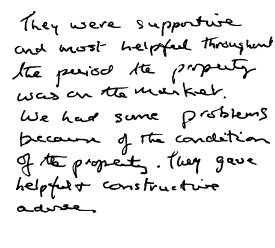 They were supportive
and most helpful throughout
the period the property
was on the market.
We had some problems
because of the condition
of the property. They gave
helpful & constructive
advice.